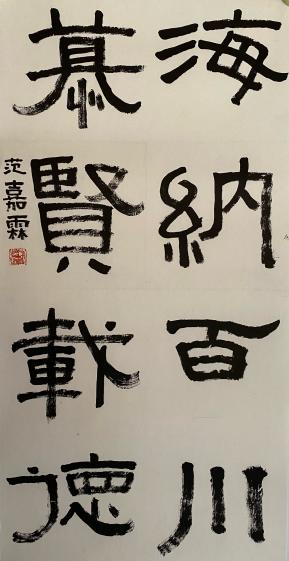 海納百川
慕賢載德
范嘉霖